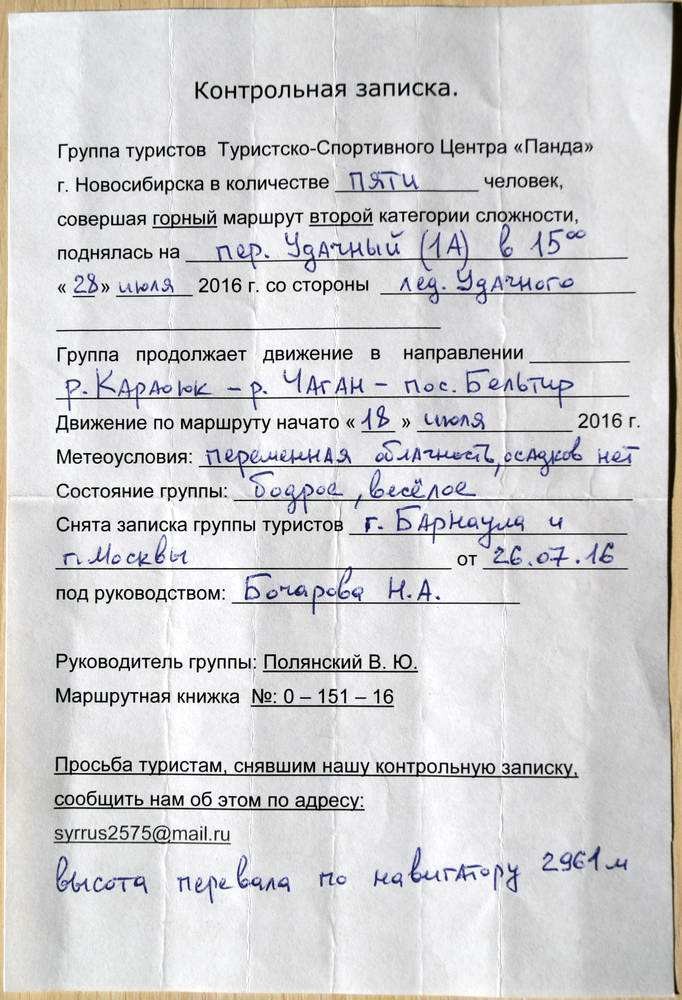 Контрольная записка.
Группа туристов Туристско-Спортивного Центра «Панда»
г. Новосибирска в количестве пяти человек,
совершая горный маршрут второй категории сложности,
поднялась на пер. Удачный (1А) в 15⁰⁰
«28» июля 2016 г. со стороны лед. Удачного
Группа продолжает движение в направлении
р. Караоюк – р. Чаган – пос. Бельтир
Движение по маршруту начато «18» июля 2016 г.
Метеоусловия: переменная облачность, осадков нет
Состояние группы: бодрое, весёлое
Снята записка группы туристов г. Барнаула и
г. Москвы от 26.07.16
под руководством: Бочарова Н.А.
Руководитель группы: Полянский В. Ю.
Маршрутная книжка №: 0 – 151 – 16
Просьба туристам, снявшим нашу контрольную записку,
сообщить нам об этом по адресу:
syrrus2575@mail.ru
высота перевала по навигатору 2961 м